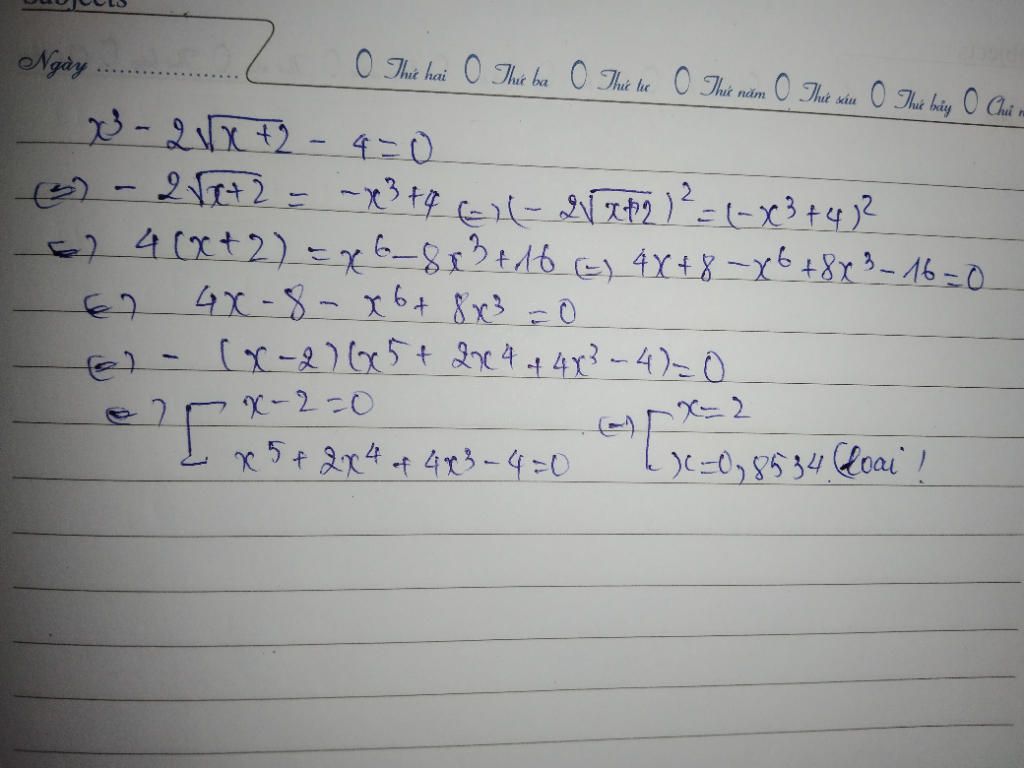 Subjects
Ngày ....................
O Thứ hai O Thứ ba O Thứ tư O Thứ năm O Thứ sáu O Thứ bảy O Chủ
x³ - 2√(x+2) - 4 = 0
(=) - 2√(x+2) = -x³+4 (=) (- 2√(x+2))² = (-x³+4)²
(=) 4(x+2) = x⁶-8x³+16 (=) 4x+8-x⁶+8x³-16=0
(=) 4x-8-x⁶+8x³=0
(=) - (x-2)(x⁵+2x⁴+4x³-4)=0
(=) [ x-2=0 (=) [ x=2
x⁵+2x⁴+4x³-4=0 x=0,8534 (loại !